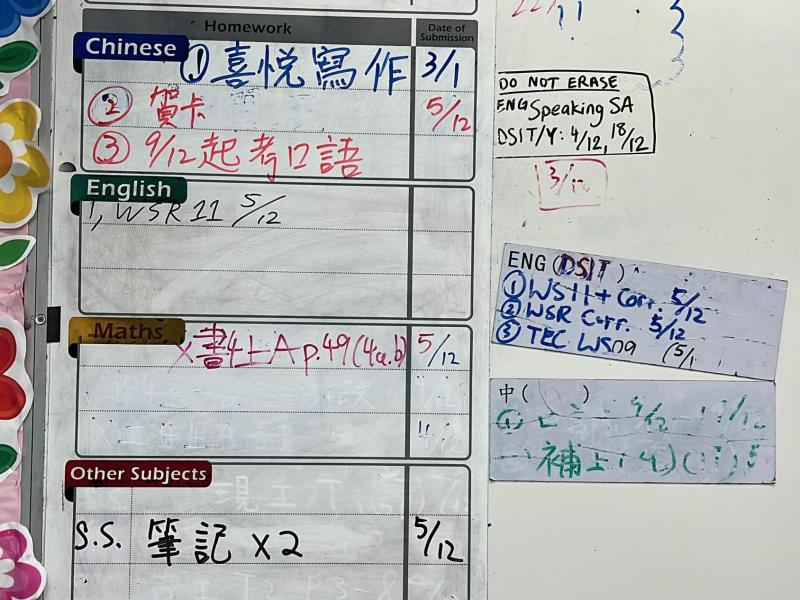 Homework
Date of Submission
Chinese
① 喜悅寫作 3/1
② 賀卡 5/12
③ 9/12起考口語
English
1, WSR 11 5/12
Maths
X書4上A p.49(4a.b) 5/12
Other Subjects
S.S. 筆記 x2 5/12
DO NOT ERASE
ENG Speaking SA
DSIT/Y: 4/12, 18/12
3/12
ENG (DSIT)
① WS11 + Corr. 5/12
② WSR Corr. 5/12
③ TEC WS09 (5/1
中( )
補上